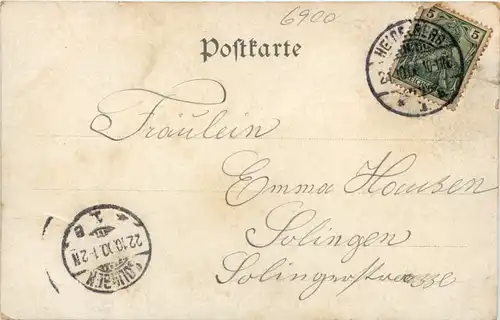 6900
Postkarte
5 5
HEIDELBERG
1.
Fräulein
Emma Hausen
Solingen
Solingerstrasse
SOLINGEN
22.10.10.1-2N
* 1 B